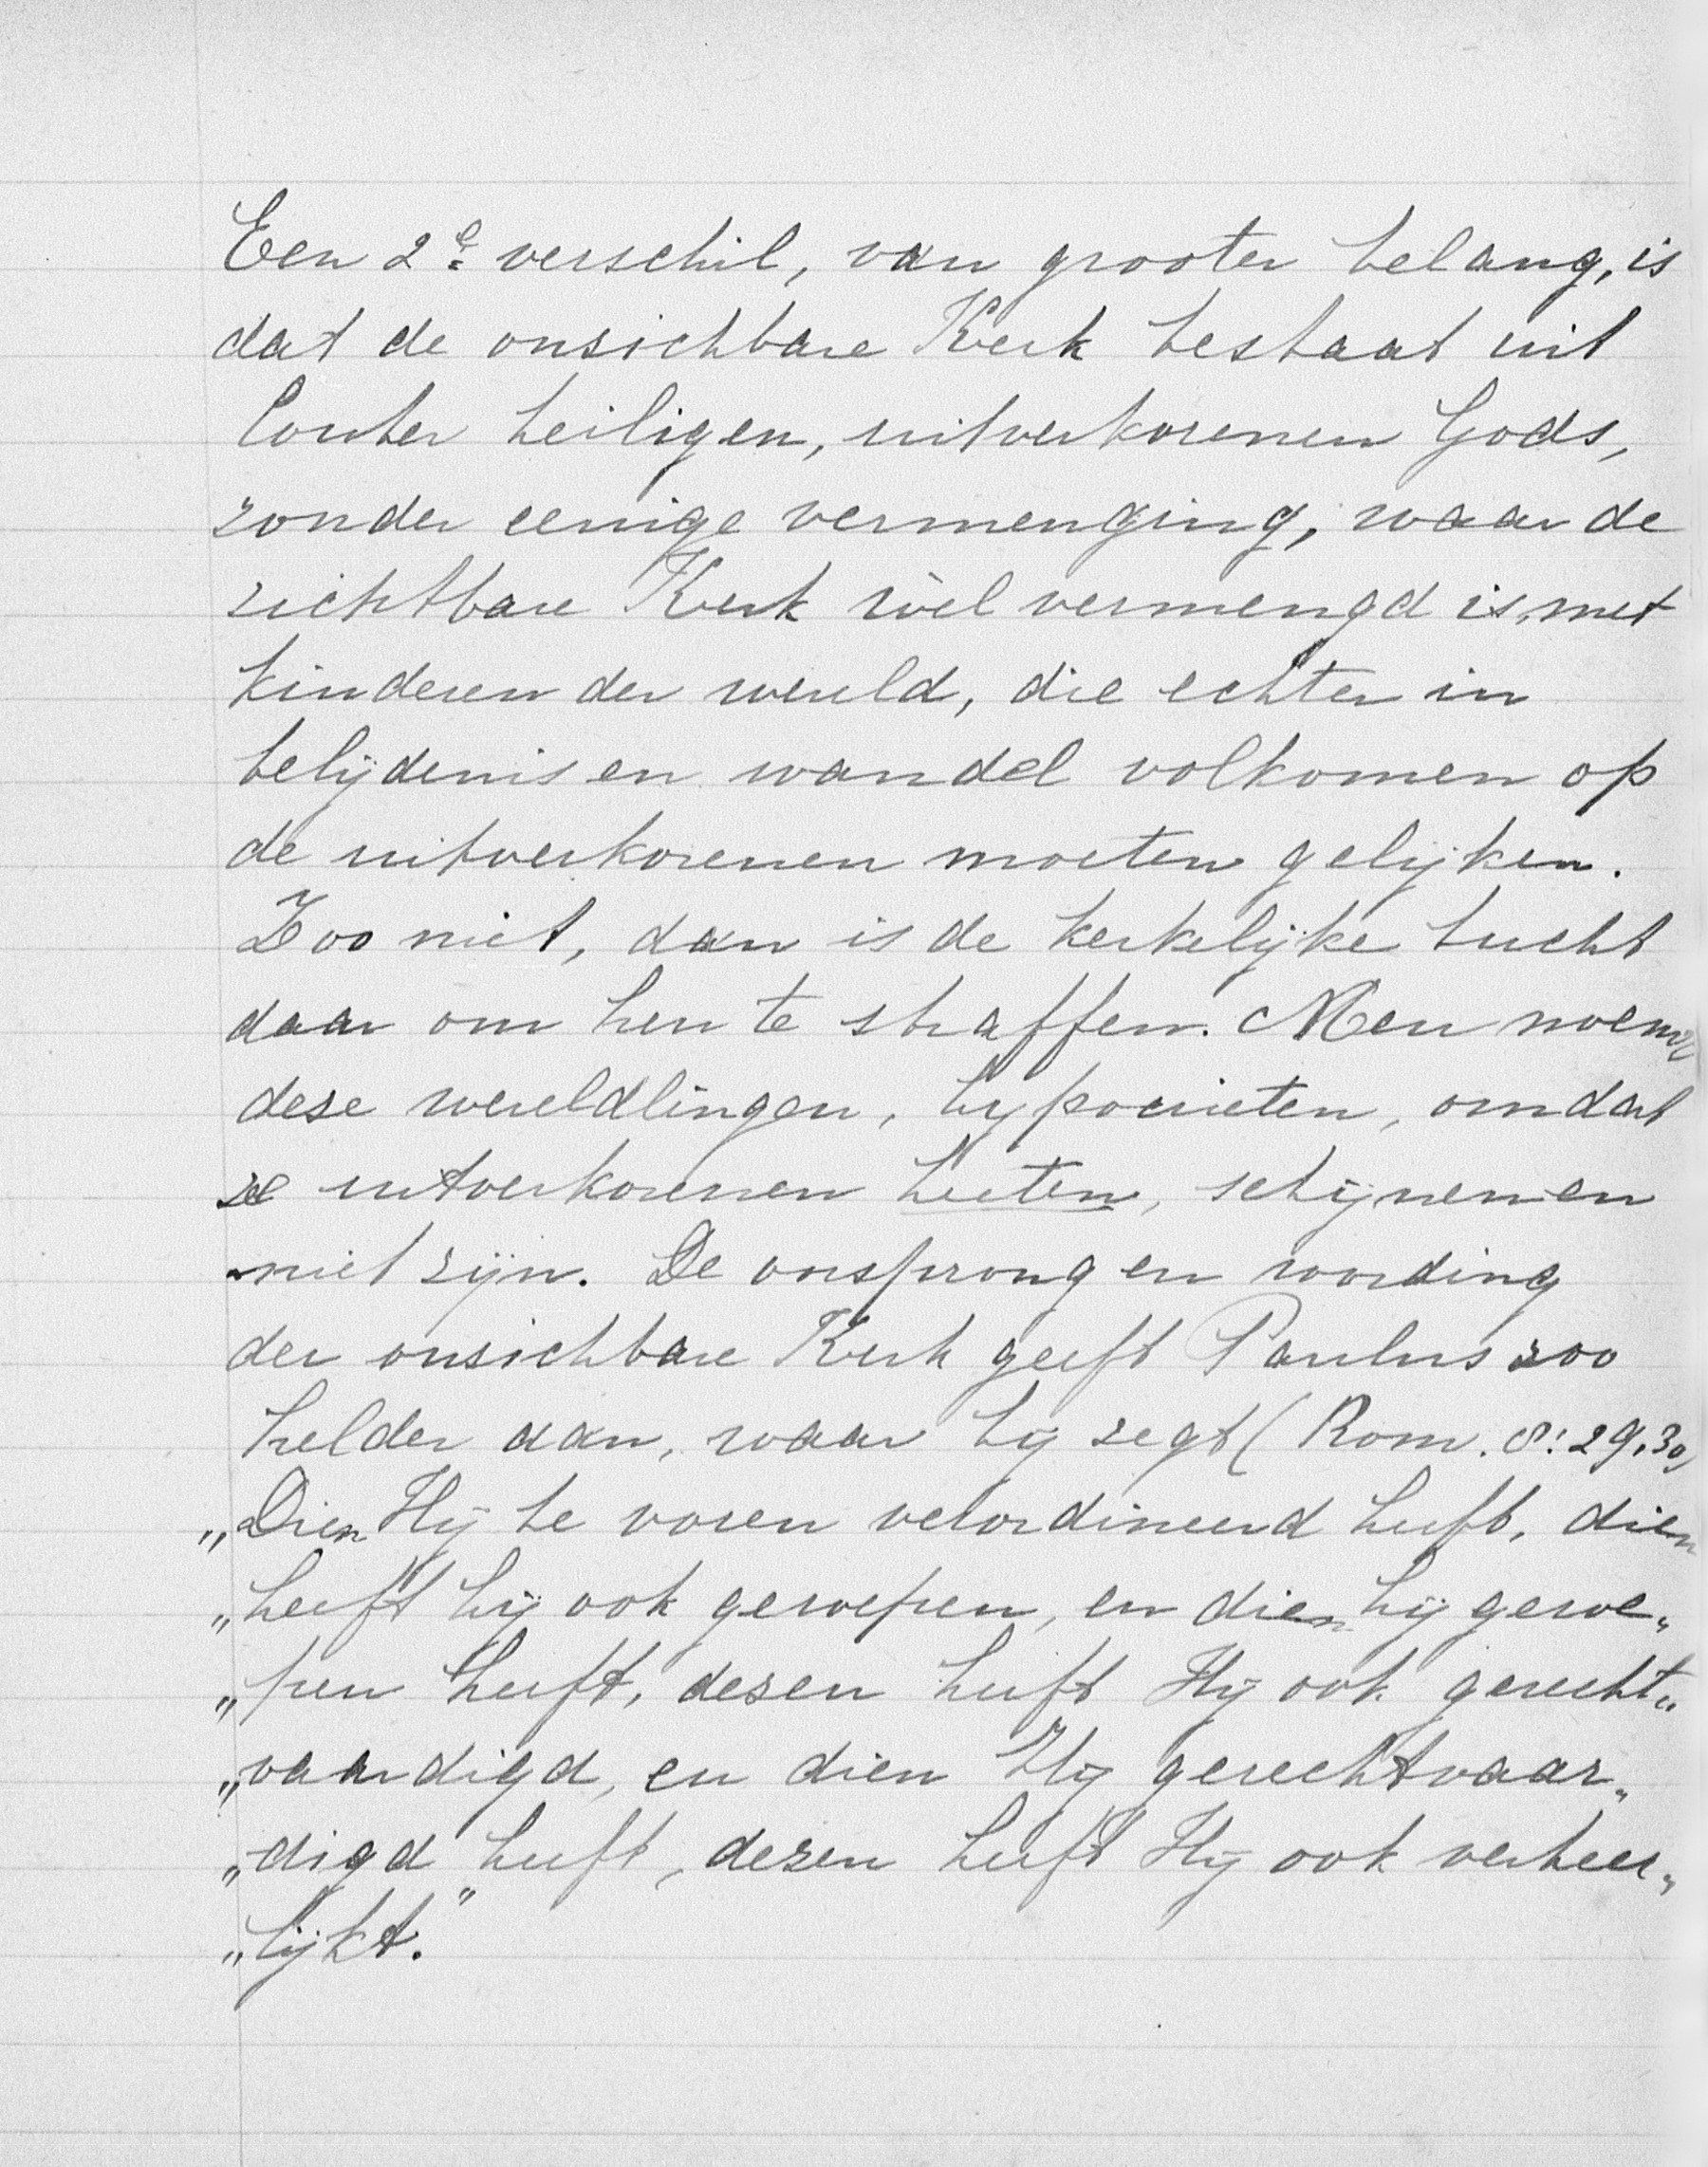 Een 2e verschil, van grooter belang, is
dat de onzichtbare Kerk bestaat uit
louter heiligen, uitverkorenen Gods,
zonder eenige vermenging, waar de
zichtbare Kerk wèl vermengd is, met
kinderen der wereld, die echter in
belijdenis en wandel volkomen op
de uitverkorenen moeten gelijken.
Zoo niet, dan is de kerkelijke tucht
daar om hen te straffen. Men noemt
deze wereldlingen, hypocrieten, omdat
ze uitverkorenen heeten, schijnen en
niet zijn. De oorsprong en wording
der onzichtbare Kerk geeft Paulus zoo
helder aan, waar hij zegt (Rom. 8: 29, 30)
„Dien Hij te voren verordineerd heeft, dien
„heeft hij ook geroepen, en dien hij geroe„
„pen heeft, dezen heeft Hij ook gerecht„
„vaardigd, en dien Hij gerechtvaar„
„digd heeft, dezen heeft Hij ook verheer„
„lijkt."